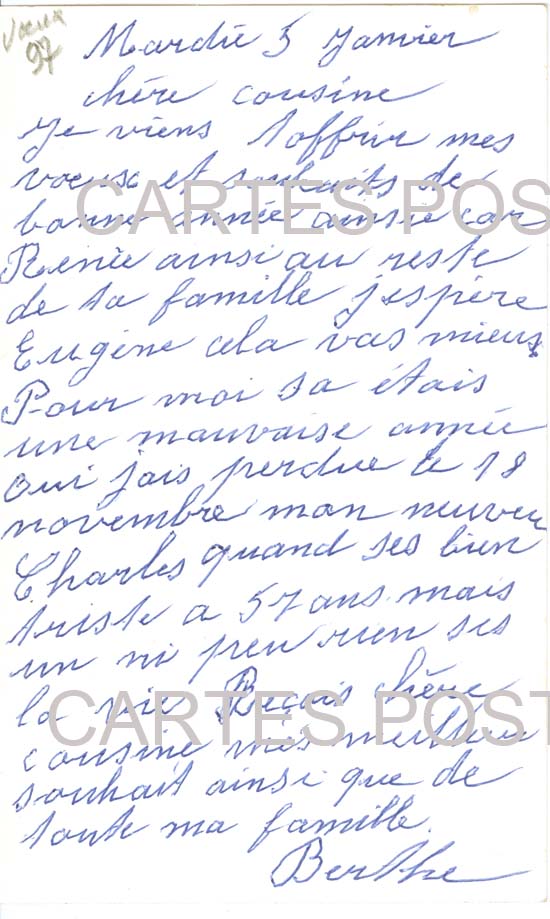 Voeux
97
Mardie 5 Janvier
chère cousine
Je viens t'offrir mes
voeuse et souhaits de
CARTES POST
bonne année ainsie car
Renée ainsi au reste
de ta famille j'espère
Eugène cela vas mieux
Pour moi sa étais
une mauvaise année
oui jais perdue le 18
novembre mon neuveu
Charles quand ses bien
triste a 57 ans mais
un ni peu rien ses
CARTES POST
la vie Reçois chère
cousine mes meilleu
souhait ainsi que de
toute ma famille.
Berthe